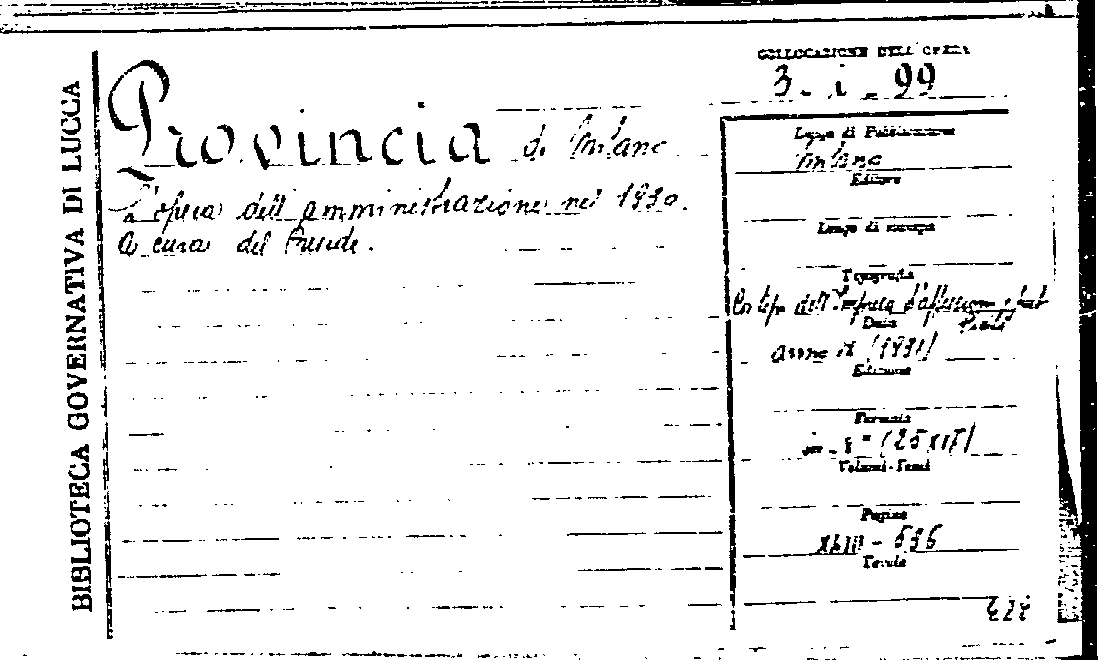 BIBLIOTECA GOVERNATIVA DI LUCCA
COLLOCAZIONE DELL'OPERA
3. i. 99
Provincia di Milano
L'opera dell'amministrazione nel 1930.
A cura del Preside.
Luogo di Pubblicazione
Milano
Editore
Luogo di stampa
Tipografia
dell'
Data
anno IX (1931)
Edizione
Formato
in-8° (25x17)
Volumi-Tomi
Pagine
XLIII - 536
Tavole